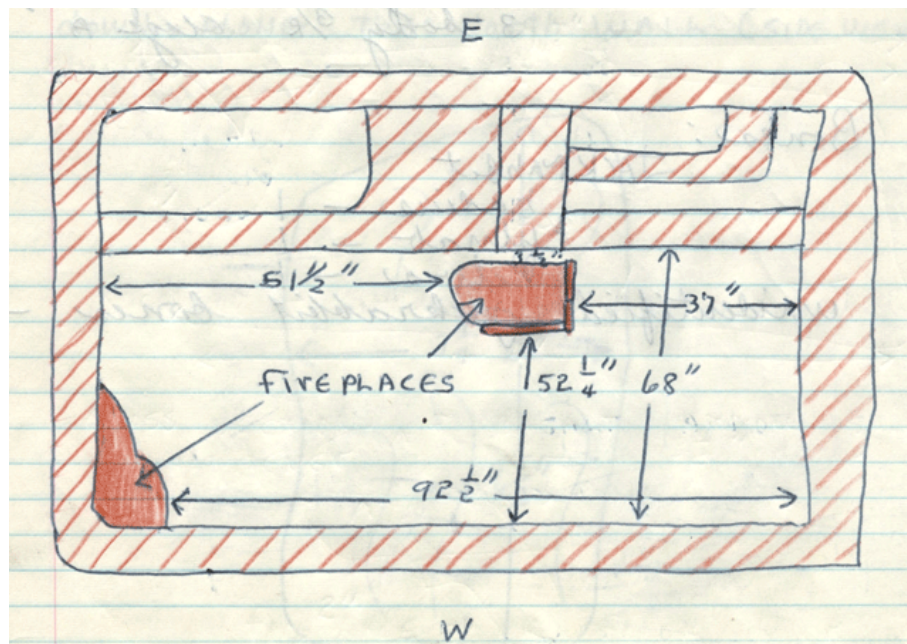 E
51 1/2"
37"
FiREPLACES
52 1/4"
68"
92 1/2"
W